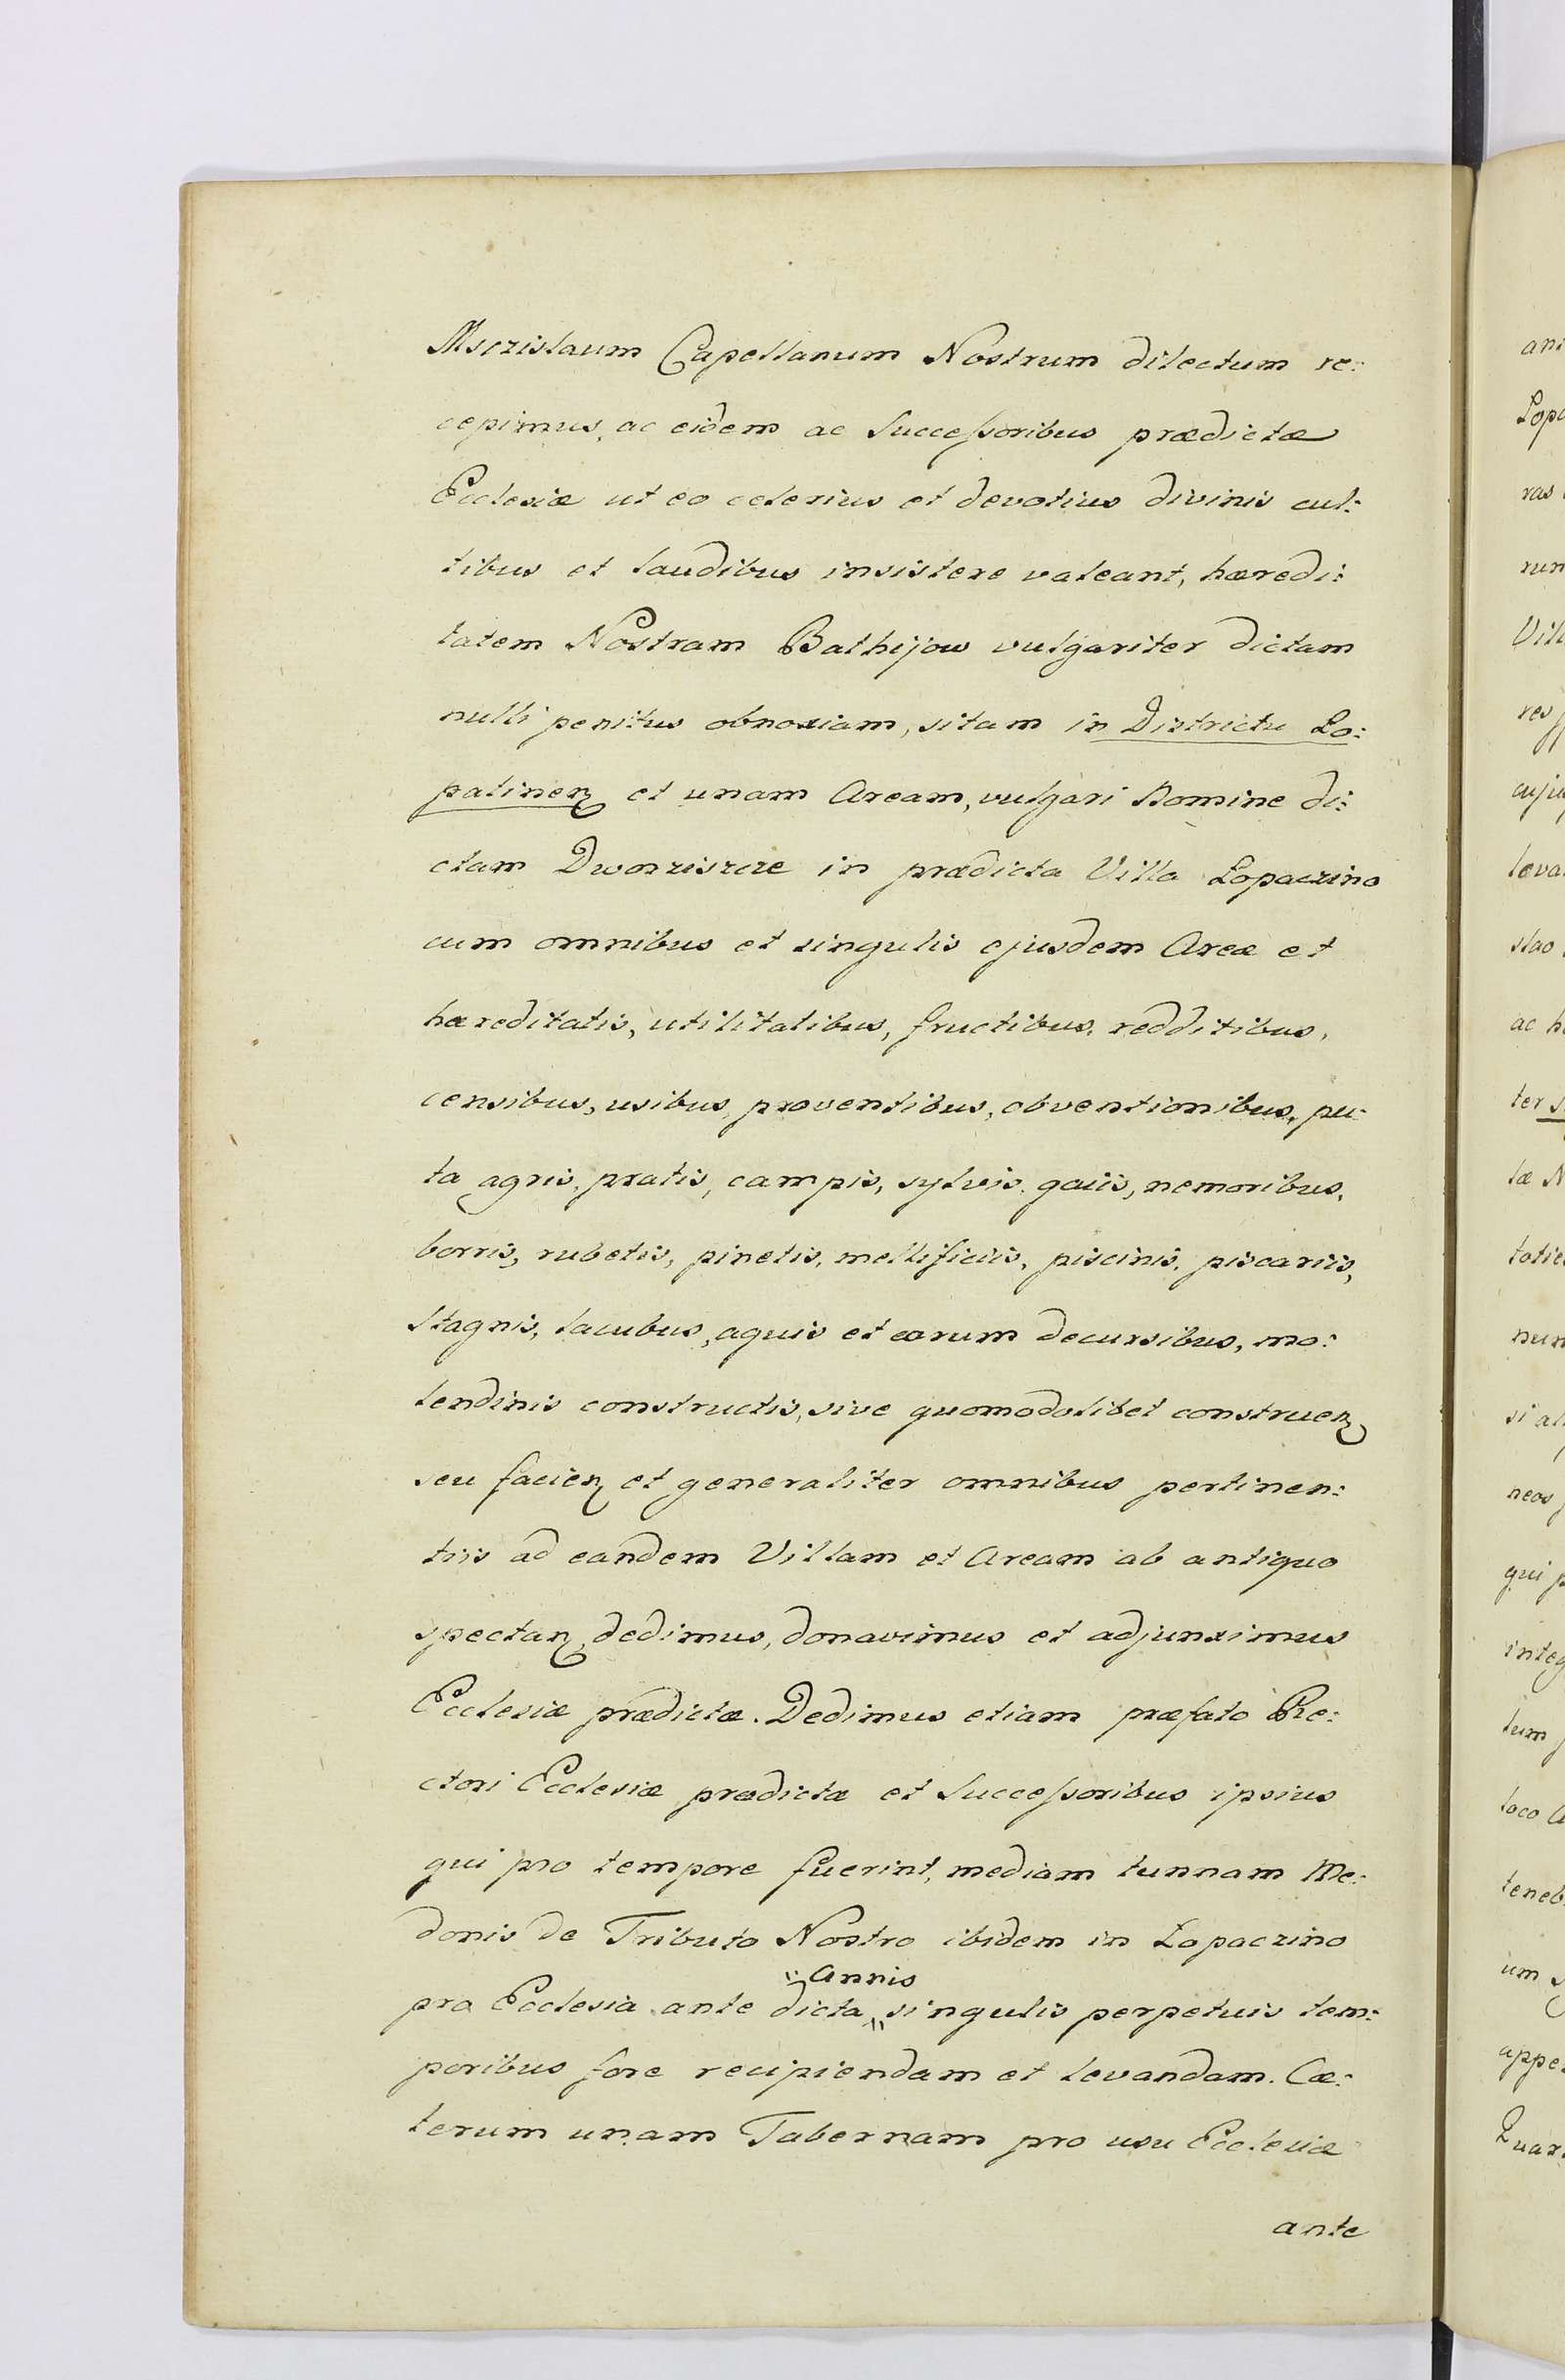 Msczislaum Capellanum Nostrum dilectum re:
cepimus, ac eidem ac Successoribus prædictæ
Ecclesiæ ut eo celerius et devotius divinis cul:
tibus et laudibus insistere valeant, hæredi:
tatem Nostram Bathijow vulgariter dictam
nulli penitus obnoxiam, sitam in Districtu Lo:
patinen et unam Aream, vulgari Nomine di:
ctam Dworziszcze in prædicta Villa Lopaczino
cum omnibus et singulis ejusdem Areæ et
hæreditatis, utilitatibus, fructibus, redditibus,
censibus, usibus, proventibus, obventionibus, pu:
ta agris, pratis, campis, sylvis, gaiis, nemoribus,
borris, rubetis, pinetis, mellificiis, piscinis, piscariis,
Stagnis, lacubus, aquis et earum decursibus, mo:
lendinis constructis, sive quomodolibet construen
seu facien et generaliter omnibus pertinen:
tiis ad eandem Villam et Aream ab antiquo
spectan, dedimus, donavimus et adjunximus
Ecclesiæ prædictæ. Dedimus etiam præfato Re:
ctori Ecclesiæ prædictæ et Successoribus ipsius
qui pro tempore fuerint, mediam tunnam Me:
donis de Tributo Nostro ibidem in Lopaczino
" Annis
pro Ecclesia ante dicta " singulis perpetuis tem:
poribus fore recipiendam et levandam. Cæ:
terum unam Tabernam pro usu Ecclesiæ
ante